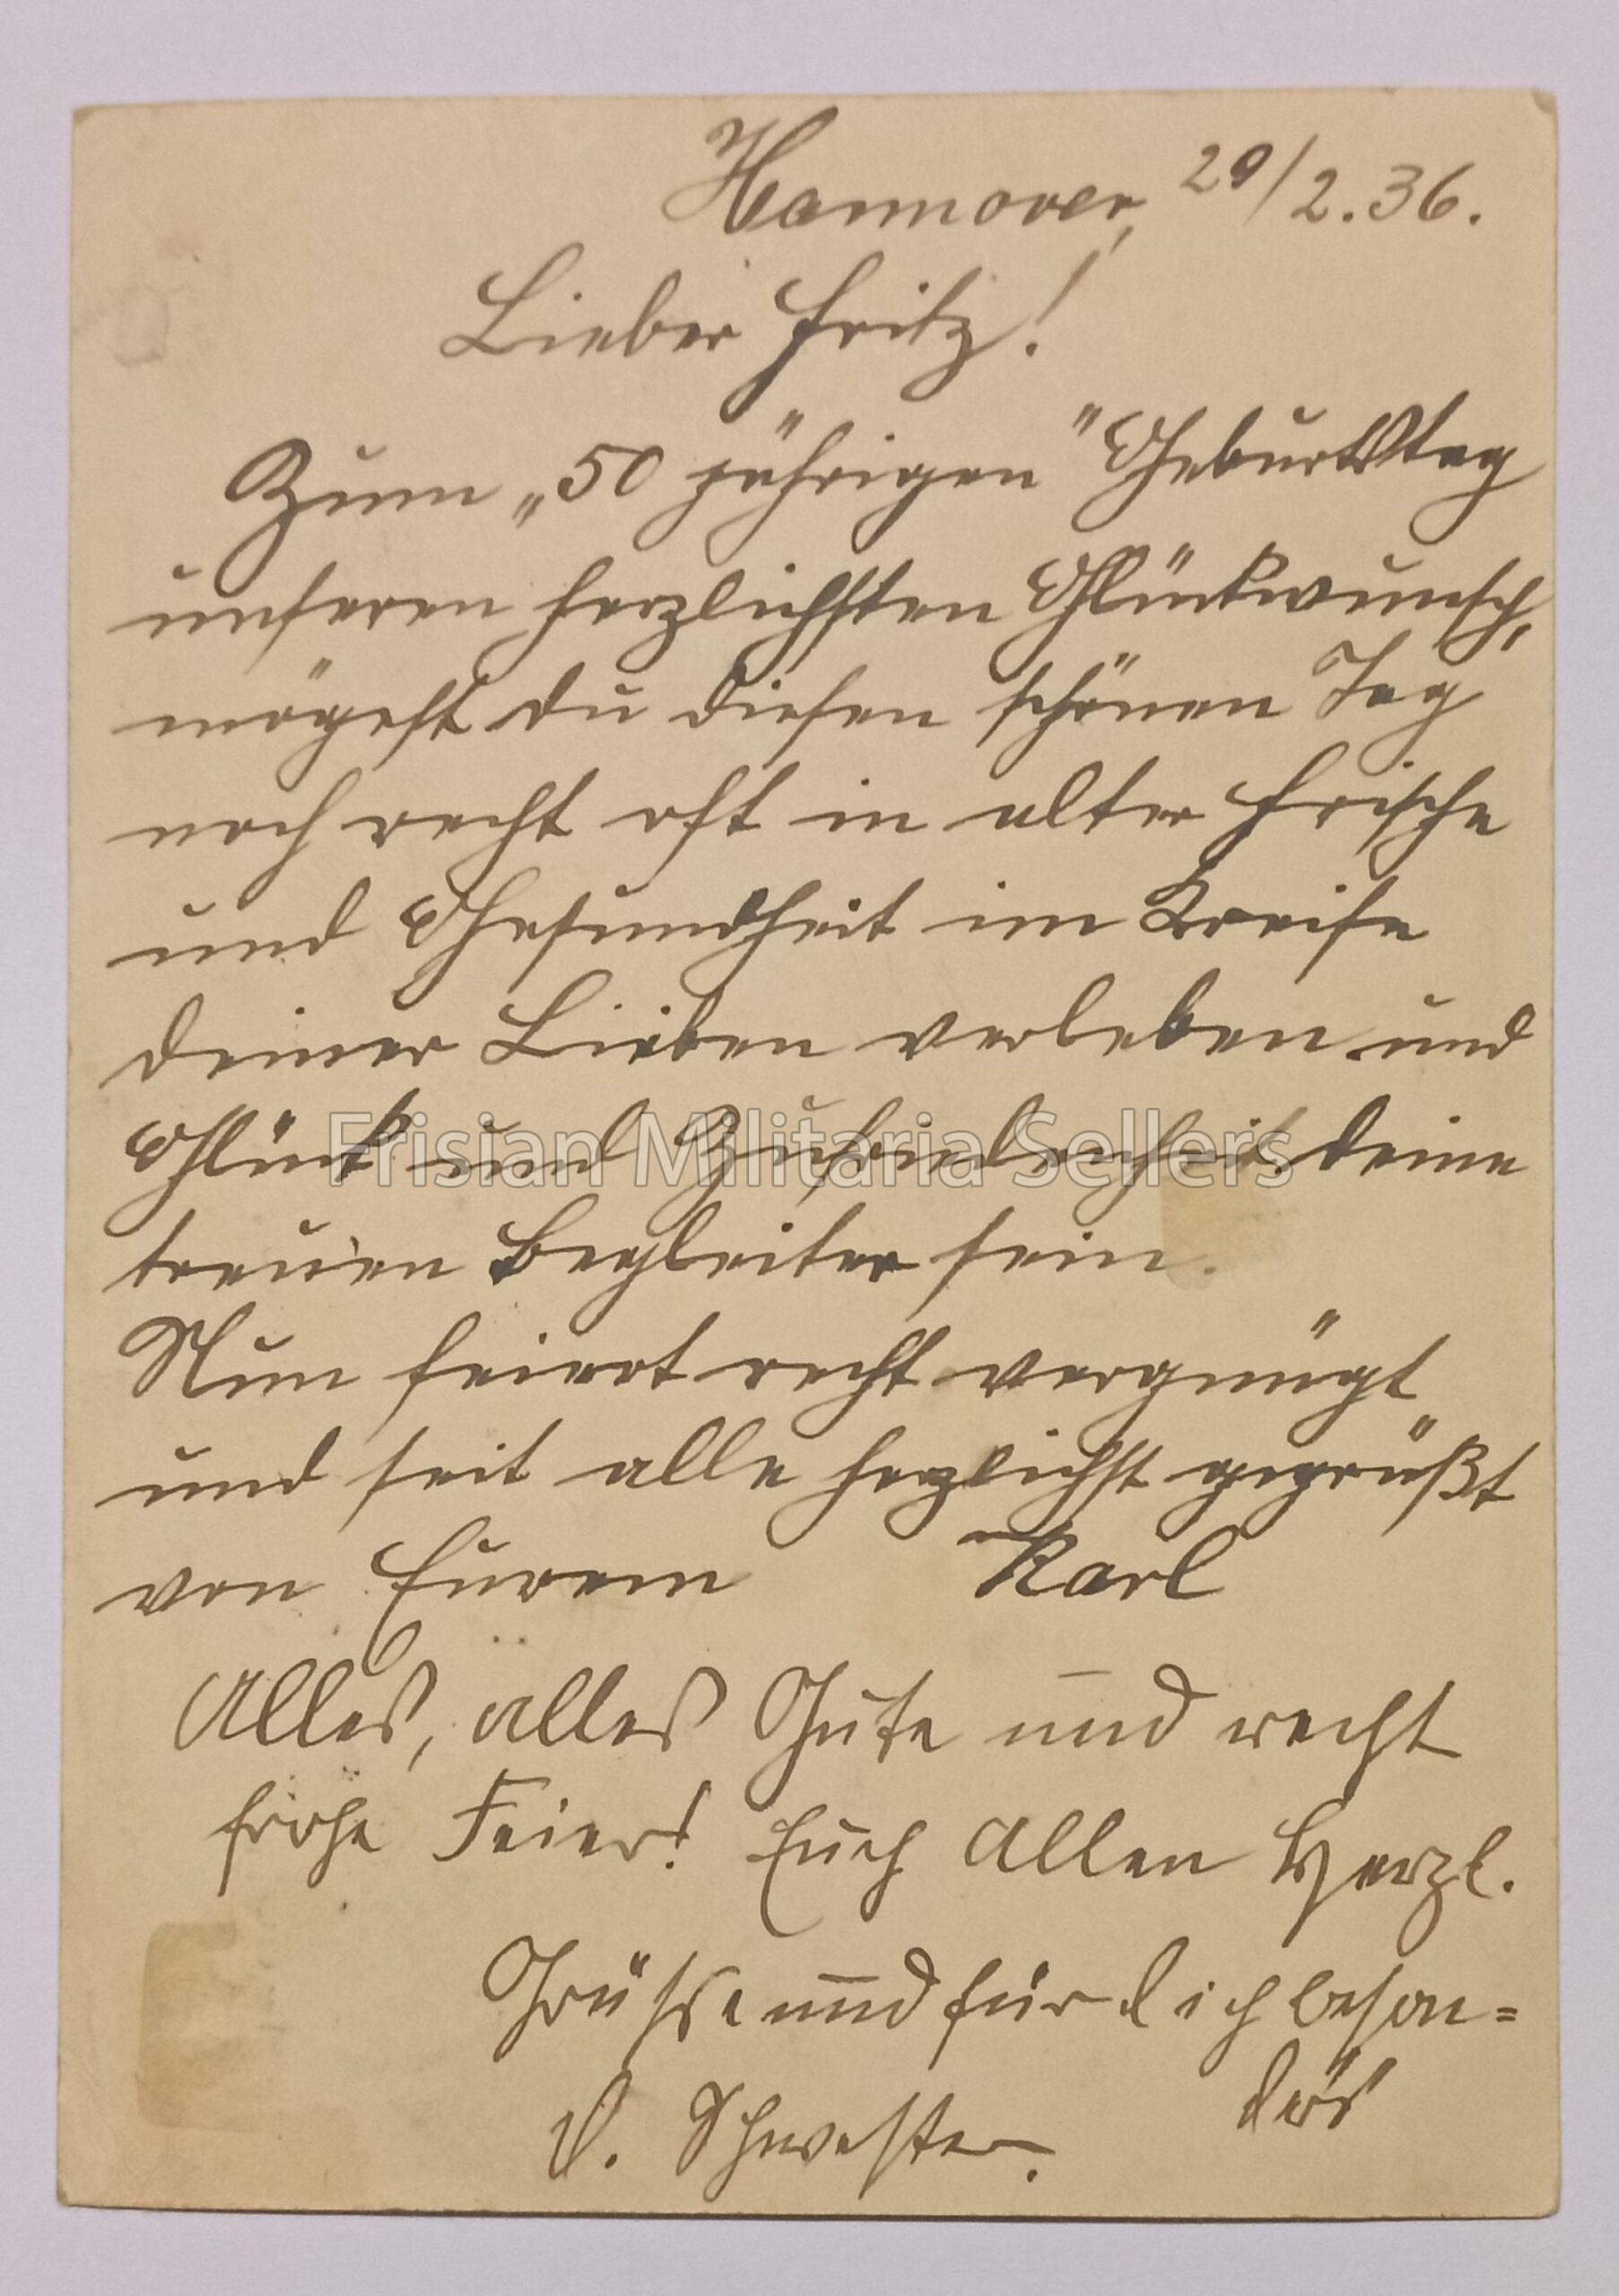 Hannover, 29/2.36.
Lieber Fritz!
Zum „50 jährigen" Geburtstag
unseren herzlichsten Glückwunsch,
mögest du diesen schönen Tag
noch recht oft in alter Frische
und Gesundheit im Kreise
deiner Lieben verleben und
Glück und Zufriedenheit deine
treuen Begleiter sein.
Nun feiert recht vergnügt
und seit alle herzlichst gegrüßt
von Eurem Karl
Alles, alles Gute und recht
frohe Feier! Euch Allen Herzl.
Grüsse und für dich beson=
ders
D. Schwester.
Frisian Militaria Sellers